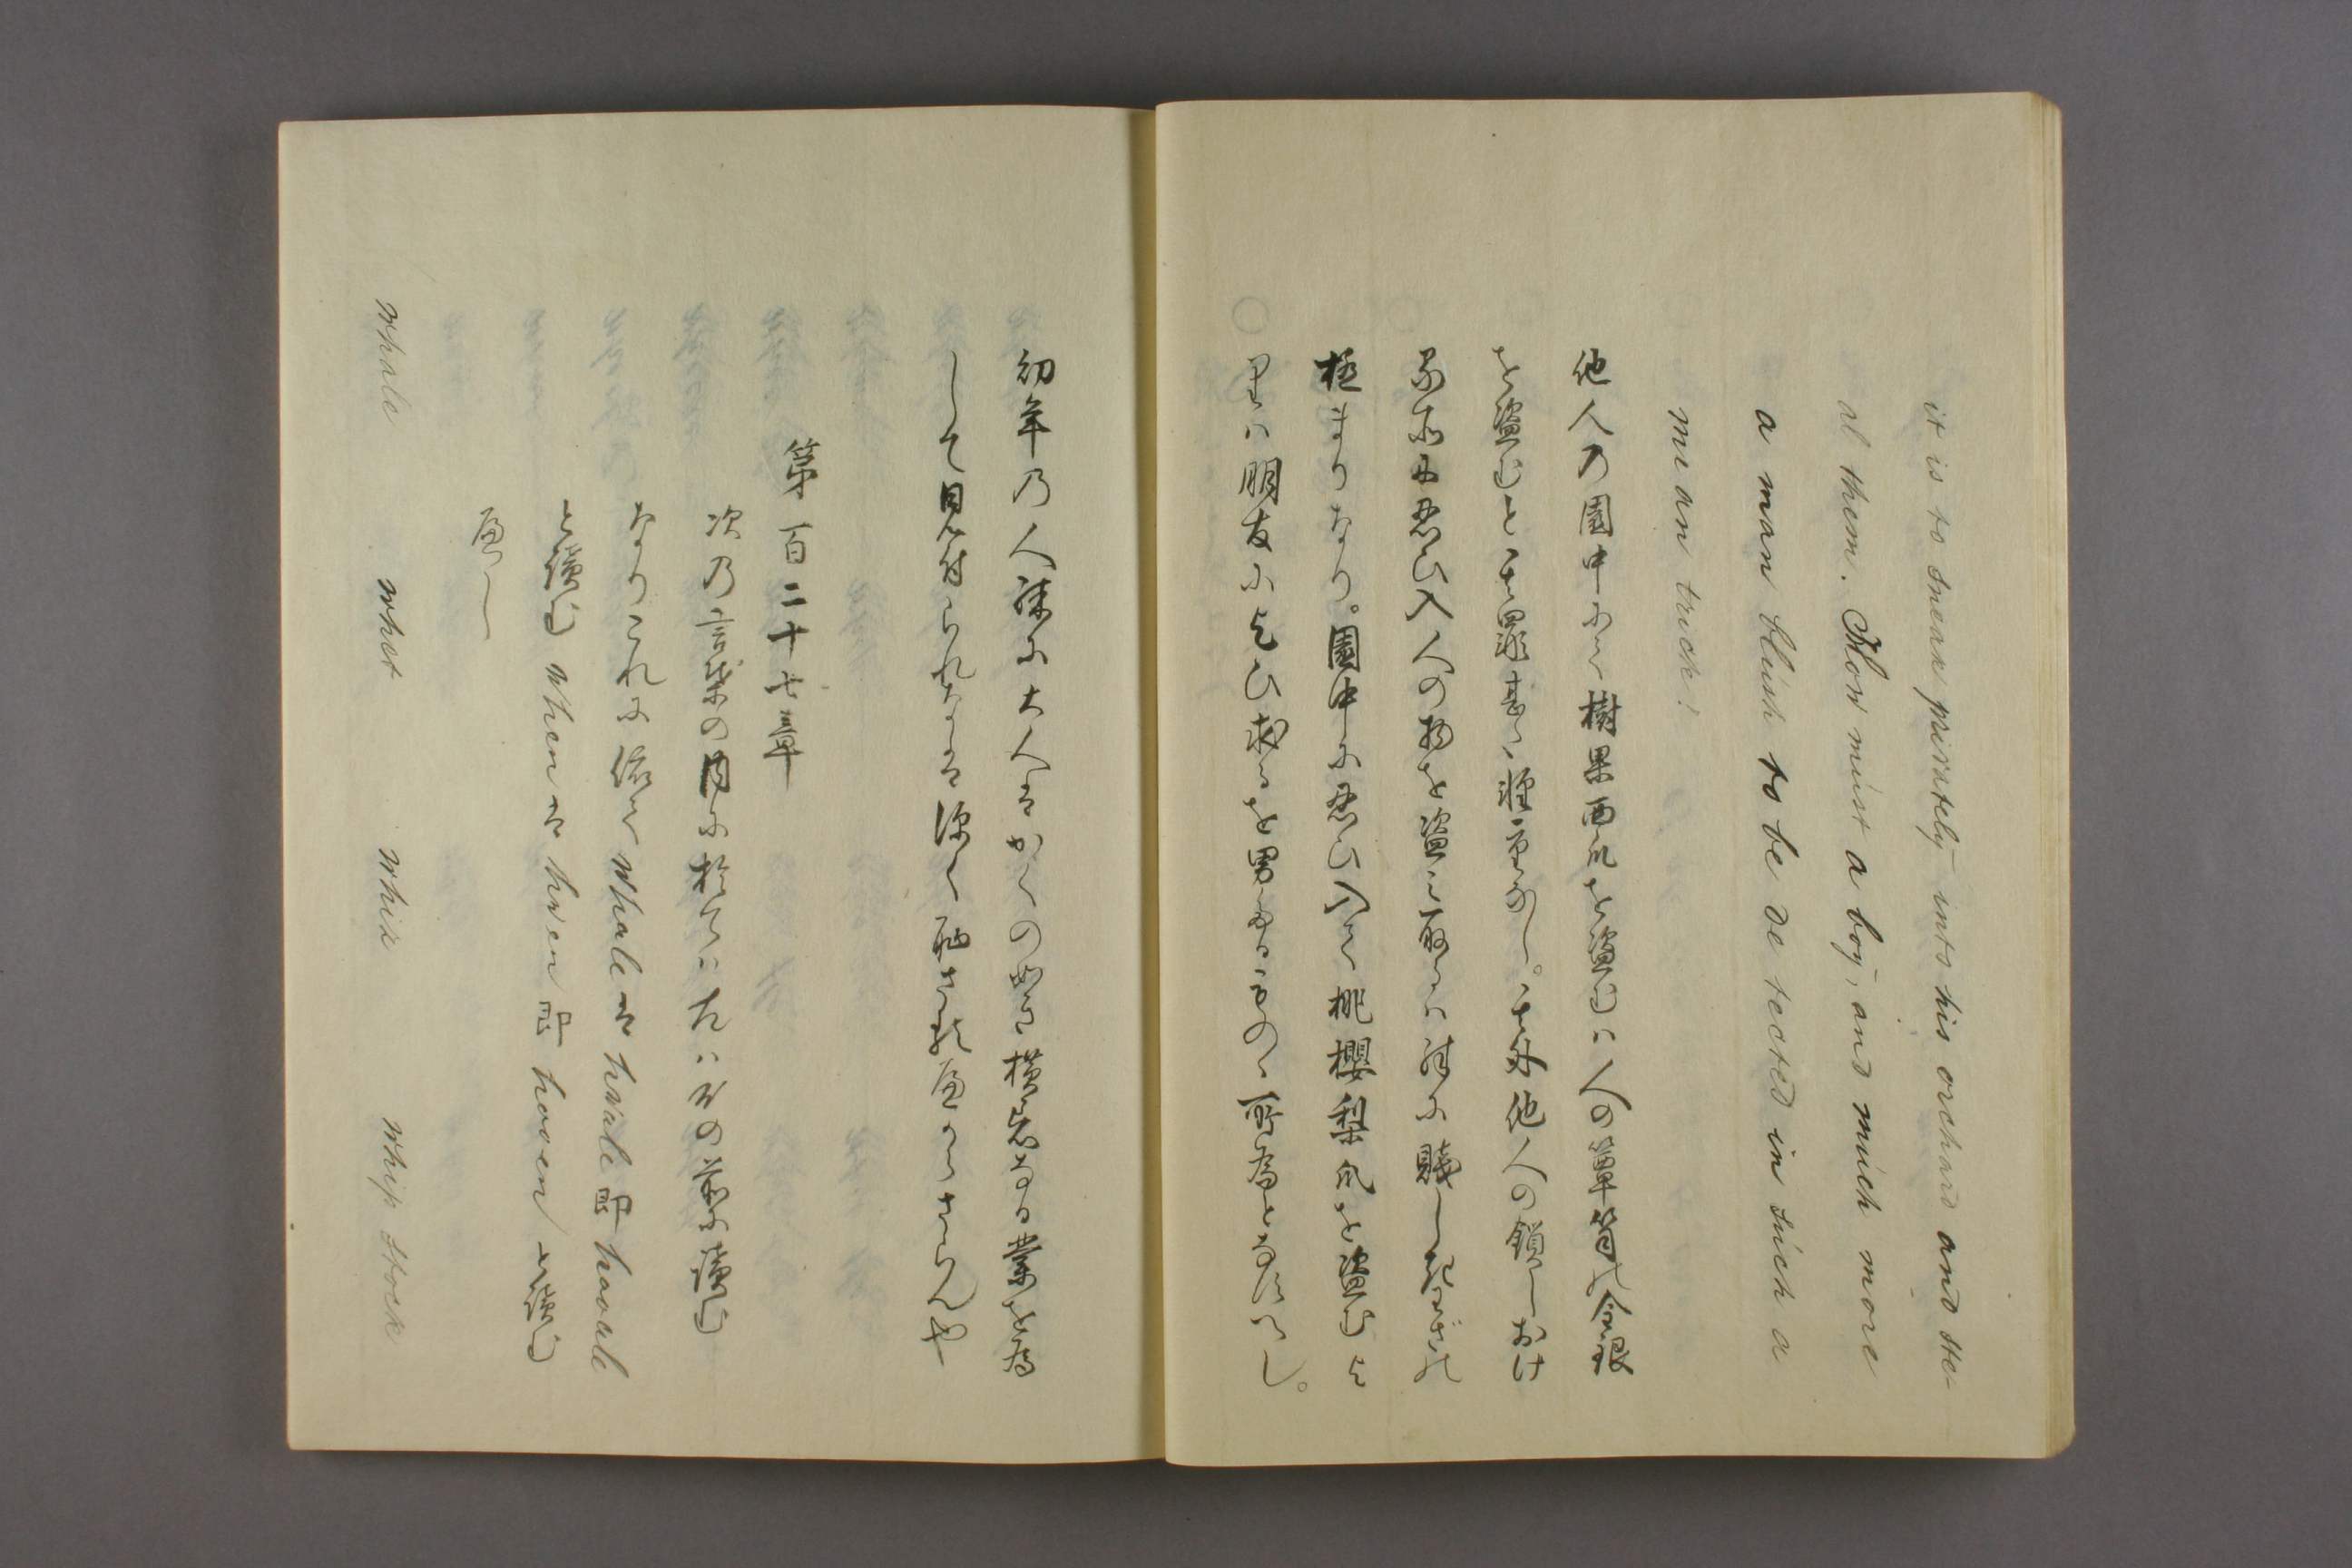 it is to sneak privately into his orchard and ste-
al them. How must a boy, and much more
a man blush to be de tected in such a
me an trick!
他人乃園中にて樹果西瓜を盗むハ人の箪笥の金銀
を盗むと其罪甚ハ軽重なし。其外他人の鎖しおけ
忍ひ入人の物を盗ミ取るハ殊に賤しきわざの
極まりなり。園中に忍ひ入て桃櫻梨瓜を盗むよ
りハ朋友に乞ひ求るを男なるものゝ所為となすへし。
幼年乃人殊に大人はかくの如き横着なる業を為
して見付られなは深く恥さる遍からさらんや
第百二十七章
次乃言葉の内に於てハ左ハ本の前に讀む
なりこれに依て whale は hwale 即 hooale
と讀む when は hwen 即 hooen と讀む
遍し
whale whet whix whip stock